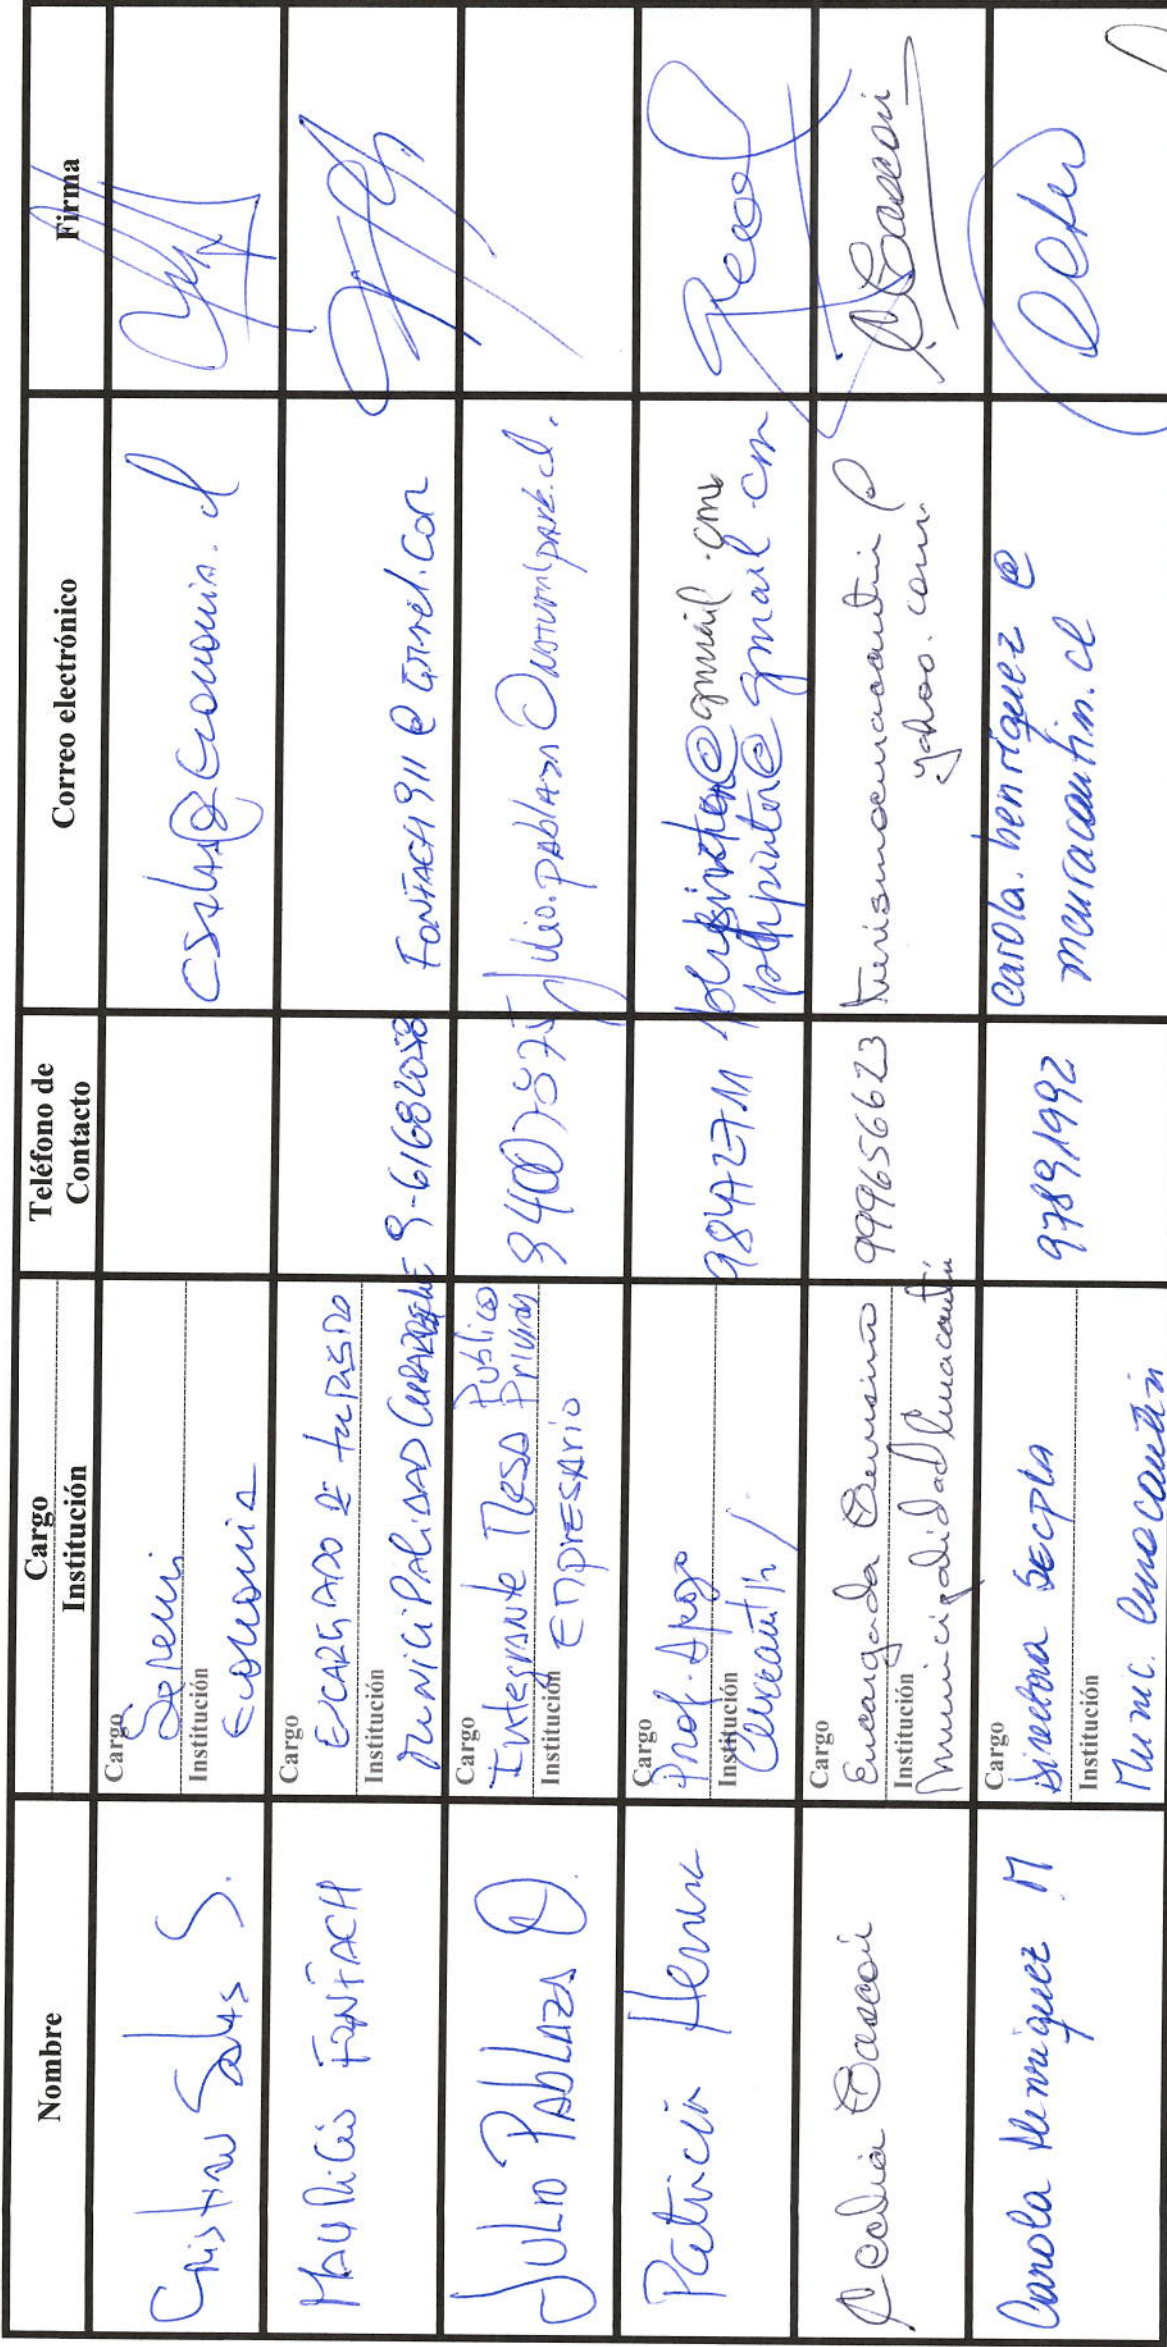 Nombre
Cargo
Institución
Teléfono de
Contacto
Correo electrónico
Firma
Cristian Salas S.
Cargo
Seremi
Institución
Economia
csalas@economia.cl
Mauricio FONTACH
Cargo
ENCARGADO DE turismo
Institución
MUNICIPALIDAD CURARREHUE
9-61682058
FONTACH911@Gmail.com
Julio Pablaza O.
Cargo
Integrante Mesa Publico Privada
Institución
Empresario
94007875
Julio.pablaza@naturalpark.cl.
Patricia
Cargo
Prof. Apoyo
Institución
Curacautín
@gmail.com
@gmail.com
Cecilia Bascoñ
Cargo
Encargada Turismo
Institución
Municipalidad Curacautín
999656623
turismocuracautin@
yahoo.com.
Carola Henriquez M
Cargo
Directora Secpla
Institución
Munic. Curacautín
97891992
carola.henriquez@
mcuracautin.cl